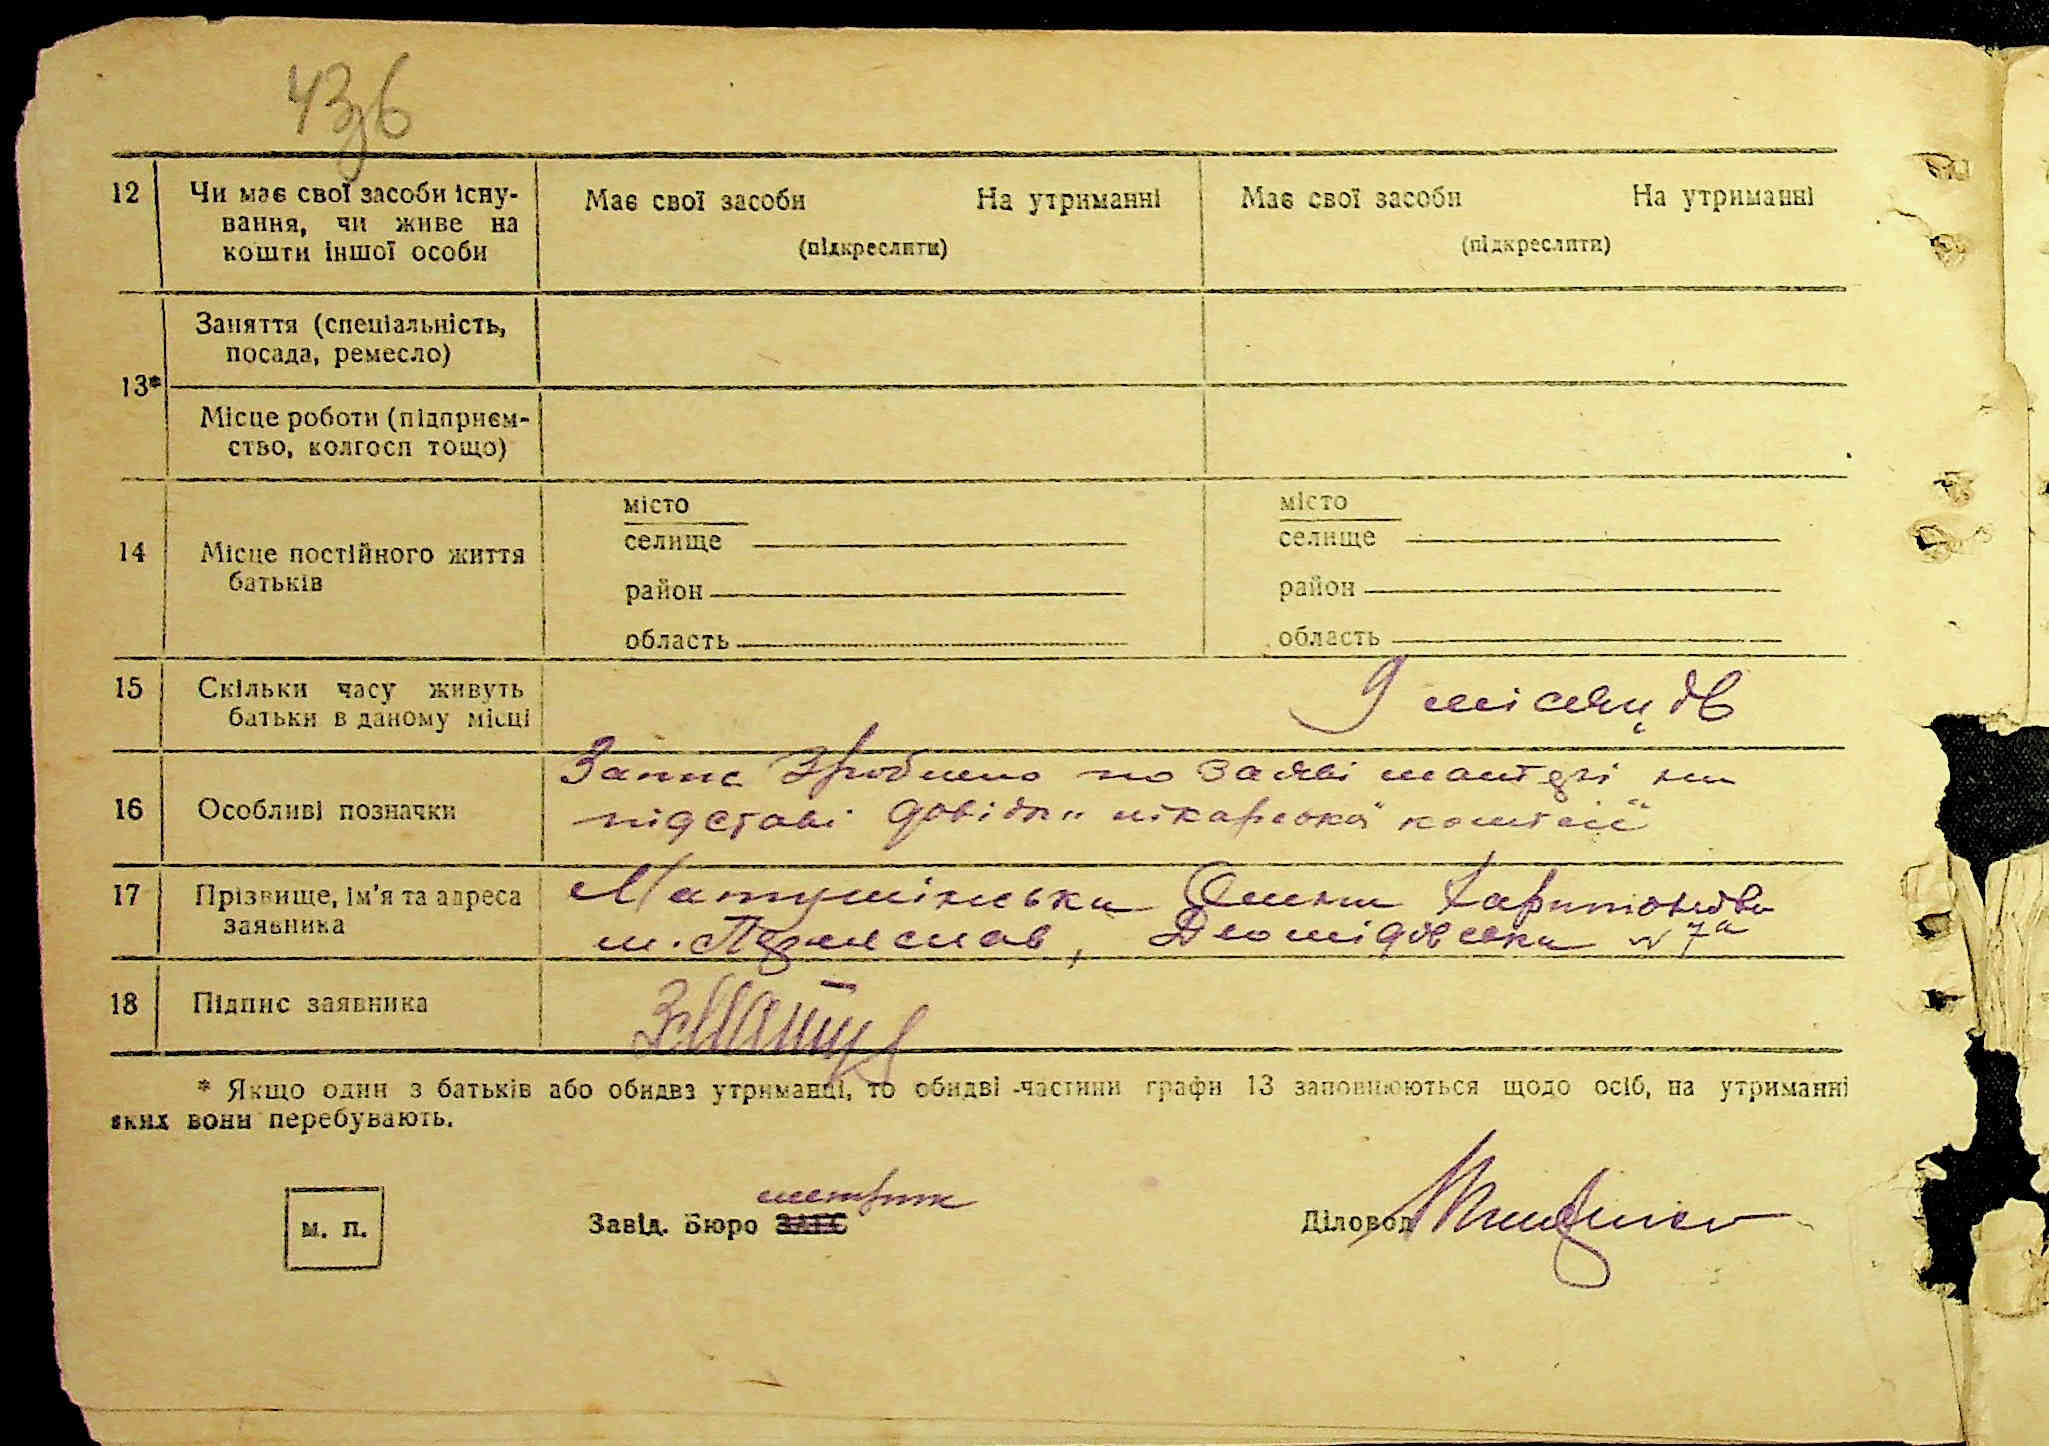 43з6
12 Чи має свої засоби існу- Має свої засоби На утриманні Має свої засоби На утриманні
вання, чи живе на (підкреслити) (підкреслити)
кошти іншої особи
Заняття (спеціальність,
посада, ремесло)
13*
Місце роботи (підприєм-
ство, колгосп тощо)
місто місто
селище селище
14 Місце постійного життя
батьків
район район
область область
15 Скільки часу живуть 9 місяців
батьки в даному місці
Запис зроблено по заяві матері на
16 Особливі позначки підставі довідки лікарської комісії
17 Прізвище, ім'я та адреса Матушінська Олена Харитонівна
заявника м. Переяслав, Деомідовська № 7а
18 Підпис заявника
* Якщо один з батьків або обидва утриманці, то обидві частини графи 13 заповнюються щодо осіб, на утриманні
яких вони перебувають.
метрик
м. п. Завід. Бюро ЗАГС Діловод